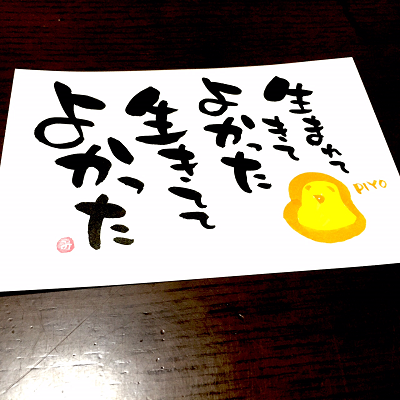 生まれて
きて
よかった
生きてて
よかった
PIYO
み